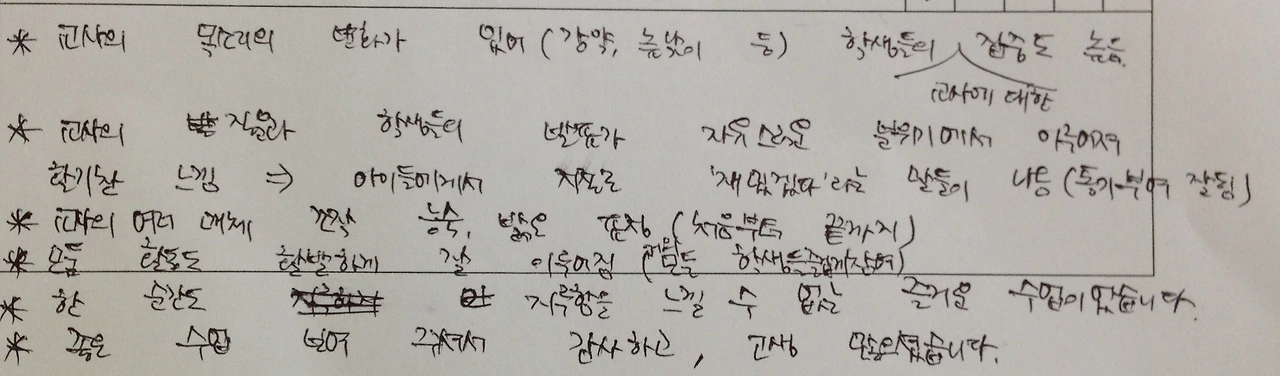 * 교사의 목소리의 변화가 있어 (강약, 높낮이 등) 학생들의 집중도 높음.
교사에 대한
* 교사의 질문과 학생들의 발표가 자유스러운 분위기에서 이루어져
활기찬 느낌 ⇒ 아이들에게서 저절로 '재밌겠다'라는 말들이 나옴 (동기부여 잘됨)
* 교사의 여러 매체 조작 능숙, 밝은 표정 (처음부터 끝까지)
* 모둠 활동도 활발하게 잘 이루어짐 (거의 모든 학생들 즐겁게 참여)
* 한 순간도 지루함을 느낄 수 없는 즐거운 수업이었습니다.
* 좋은 수업 보여 주셔서 감사하고, 고생 많으셨습니다.